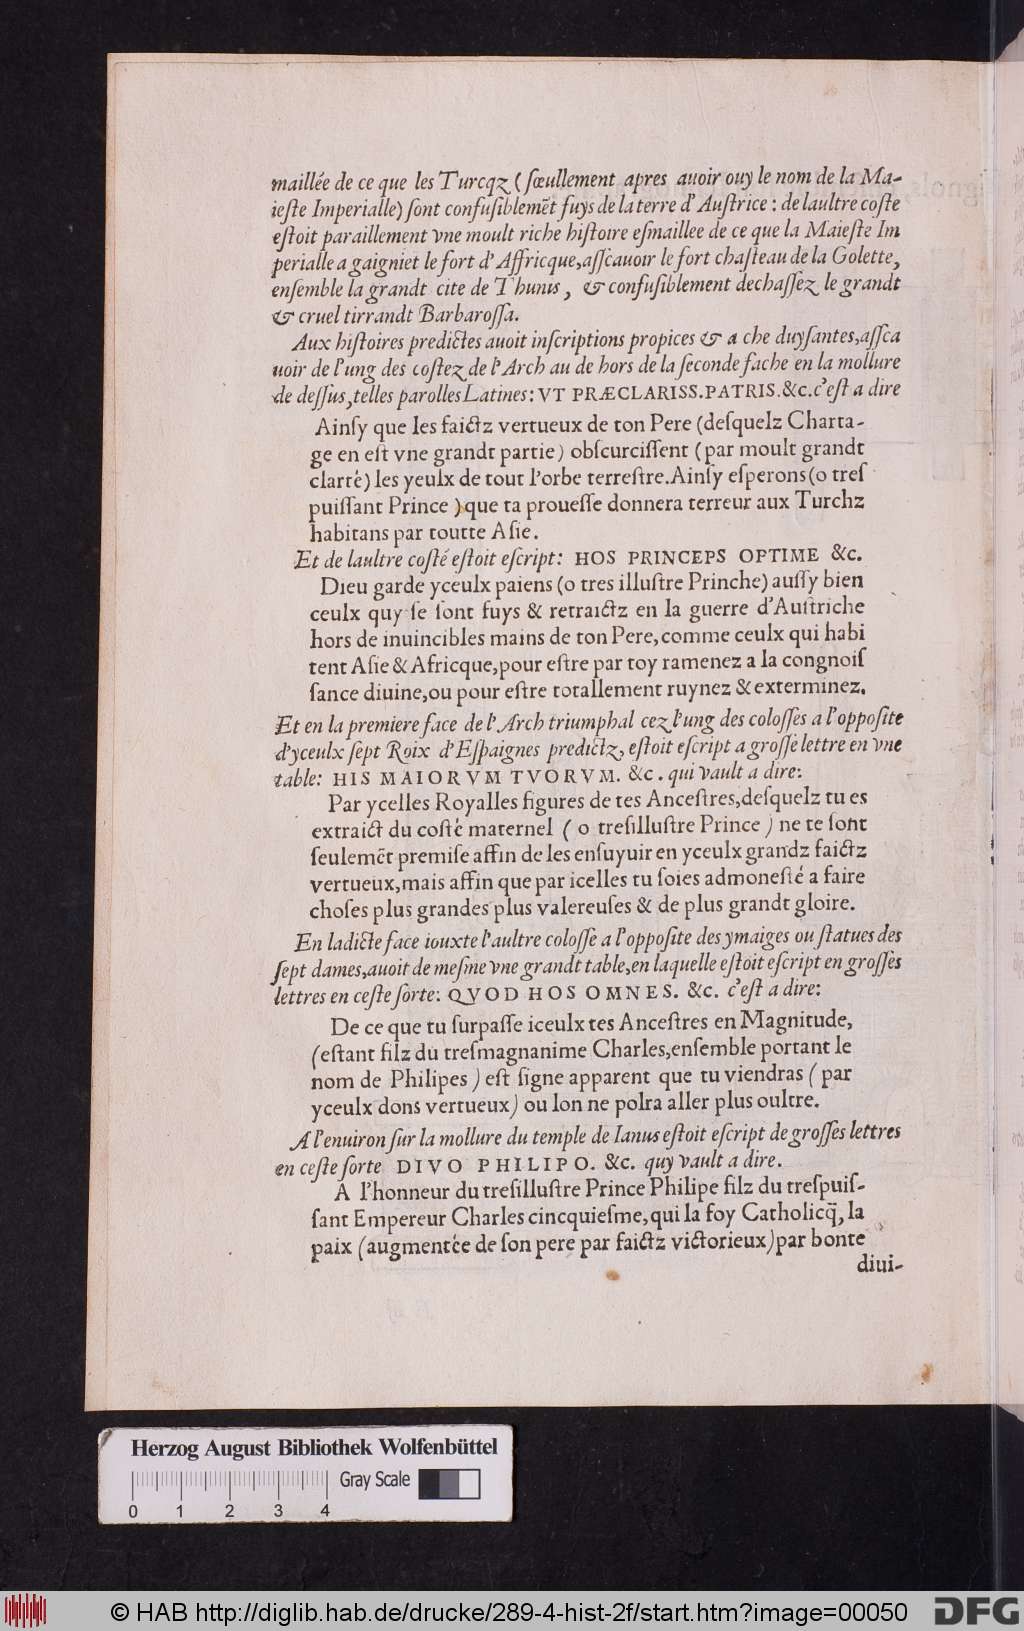 maillée de ce que les Turcqz (ſœullement apres auoir ouy le nom de la Ma-
ieſte Imperialle) ſont confuſiblemēt fuys de la terre d'Auſtrice: de laultre coſte
eſtoit paraillement vne moult riche hiſtoire eſmaillee de ce que la Maieſte Im
perialle a gaigniet le fort d'Affricque,aſſcauoir le fort chaſteau de la Golette,
enſemble la grandt cite de Thunis, & confuſiblement dechaſſez le grandt
& cruel tirrandt Barbaroſſa.
Aux hiſtoires predictes auoit inſcriptions propices & a che duyſantes,aſſca
uoir de l'ung des coſtez de l'Arch au de hors de la ſeconde fache en la mollure
de deſſus,telles parolles Latines: VT PRÆCLARISS.PATRIS.&c.c'eſt a dire
Ainſy que les faictz vertueux de ton Pere (deſquelz Charta-
ge en eſt vne grandt partie) obſcurciſſent (par moult grandt
clarté) les yeulx de tout l'orbe terreſtre.Ainſy eſperons(o treſ
puiſſant Prince ) que ta proueſſe donnera terreur aux Turchz
habitans par toutte Aſie.
Et de laultre coſté eſtoit eſcript: HOS PRINCEPS OPTIME &c.
Dieu garde yceulx paiens (o tres illuſtre Prinche) auſſy bien
ceulx quy ſe ſont fuys & retraictz en la guerre d'Auſtriche
hors de inuincibles mains de ton Pere,comme ceulx qui habi
tent Aſie & Africque,pour eſtre par toy ramenez a la congnoiſ
ſance diuine,ou pour eſtre totallement ruynez & exterminez.
Et en la premiere face de l'Arch triumphal cez l'ung des coloſſes a l'oppoſite
d'yceulx ſept Roix d'Eſpaignes predictz, eſtoit eſcript a groſſe lettre en vne
table: HIS MAIORVM TVORVM. &c. qui vault a dire:
Par ycelles Royalles figures de tes Anceſtres,deſquelz tu es
extraict du coſté maternel ( o treſilluſtre Prince ) ne te ſont
ſeulemēt premiſe affin de les enſuyuir en yceulx grandz faictz
vertueux,mais affin que par icelles tu ſoies admoneſté a faire
choſes plus grandes plus valereuſes & de plus grandt gloire.
En ladicte face iouxte l'aultre coloſſe a l'oppoſite des ymaiges ou ſtatues des
ſept dames,auoit de meſme vne grandt table,en laquelle eſtoit eſcript en groſſes
lettres en ceſte ſorte: QVOD HOS OMNES. &c. c'eſt a dire:
De ce que tu ſurpaſſe iceulx tes Anceſtres en Magnitude,
(eſtant filz du treſmagnanime Charles,enſemble portant le
nom de Philipes ) eſt ſigne apparent que tu viendras ( par
yceulx dons vertueux) ou lon ne polra aller plus oultre.
A l'enuiron ſur la mollure du temple de Ianus eſtoit eſcript de groſſes lettres
en ceſte ſorte DIVO PHILIPO. &c. quy vault a dire.
A l'honneur du treſilluſtre Prince Philipe filz du treſpuiſ-
ſant Empereur Charles cincquieſme,qui la foy Catholicq̄, la
paix (augmentée de ſon pere par faictz victorieux)par bonte
diui-
Herzog August Bibliothek Wolfenbüttel
Gray Scale
0 1 2 3 4
© HAB http://diglib.hab.de/drucke/289-4-hist-2f/start.htm?image=00050
DFG